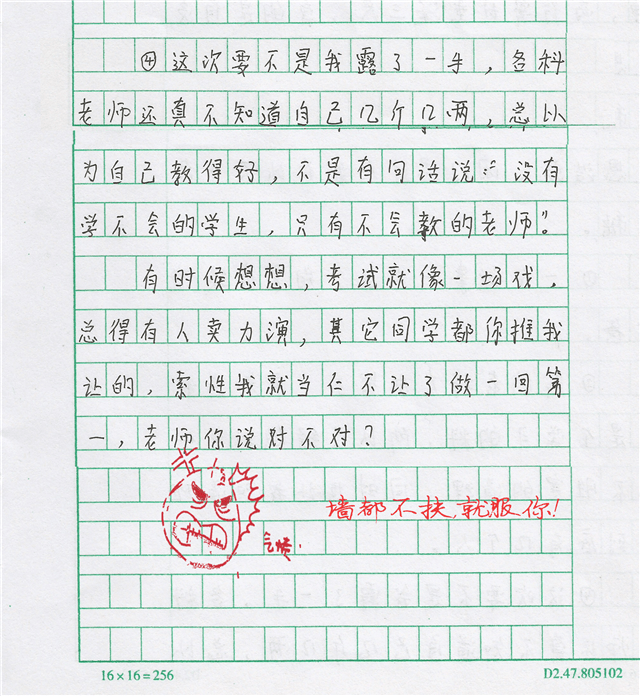 ④这次要不是我露了一手，各科
老师还真不知道自己几斤几两，总以
为自己教得好，不是有句话说：“没有
学不会的学生，只有不会教的老师”。
有时候想想，考试就像一场戏，
总得有人卖力演，其它同学都你推我
让的，索性我就当仁不让了做一回第
一，老师你说对不对？
墙都不扶，就服你！
16×16=256
D2.47.805102